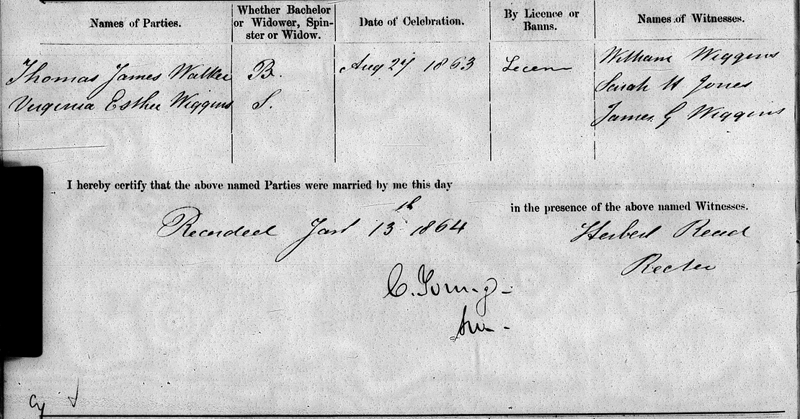 Names of Parties. Whether Bachelor or Widower, Spinster or Widow. Date of Celebration. By Licence or Banns. Names of Witnesses.
Thomas James Walker B. Aug 27 1863 William Wiggins
Sarah H Jones
Virginia Esther Wiggins S.
James G Wiggins
I hereby certify that the above named Parties were married by me this day
in the presence of the above named Witnesses.
Recorded Jany 13th 1864
Herbert Reed
Rector
C. Young